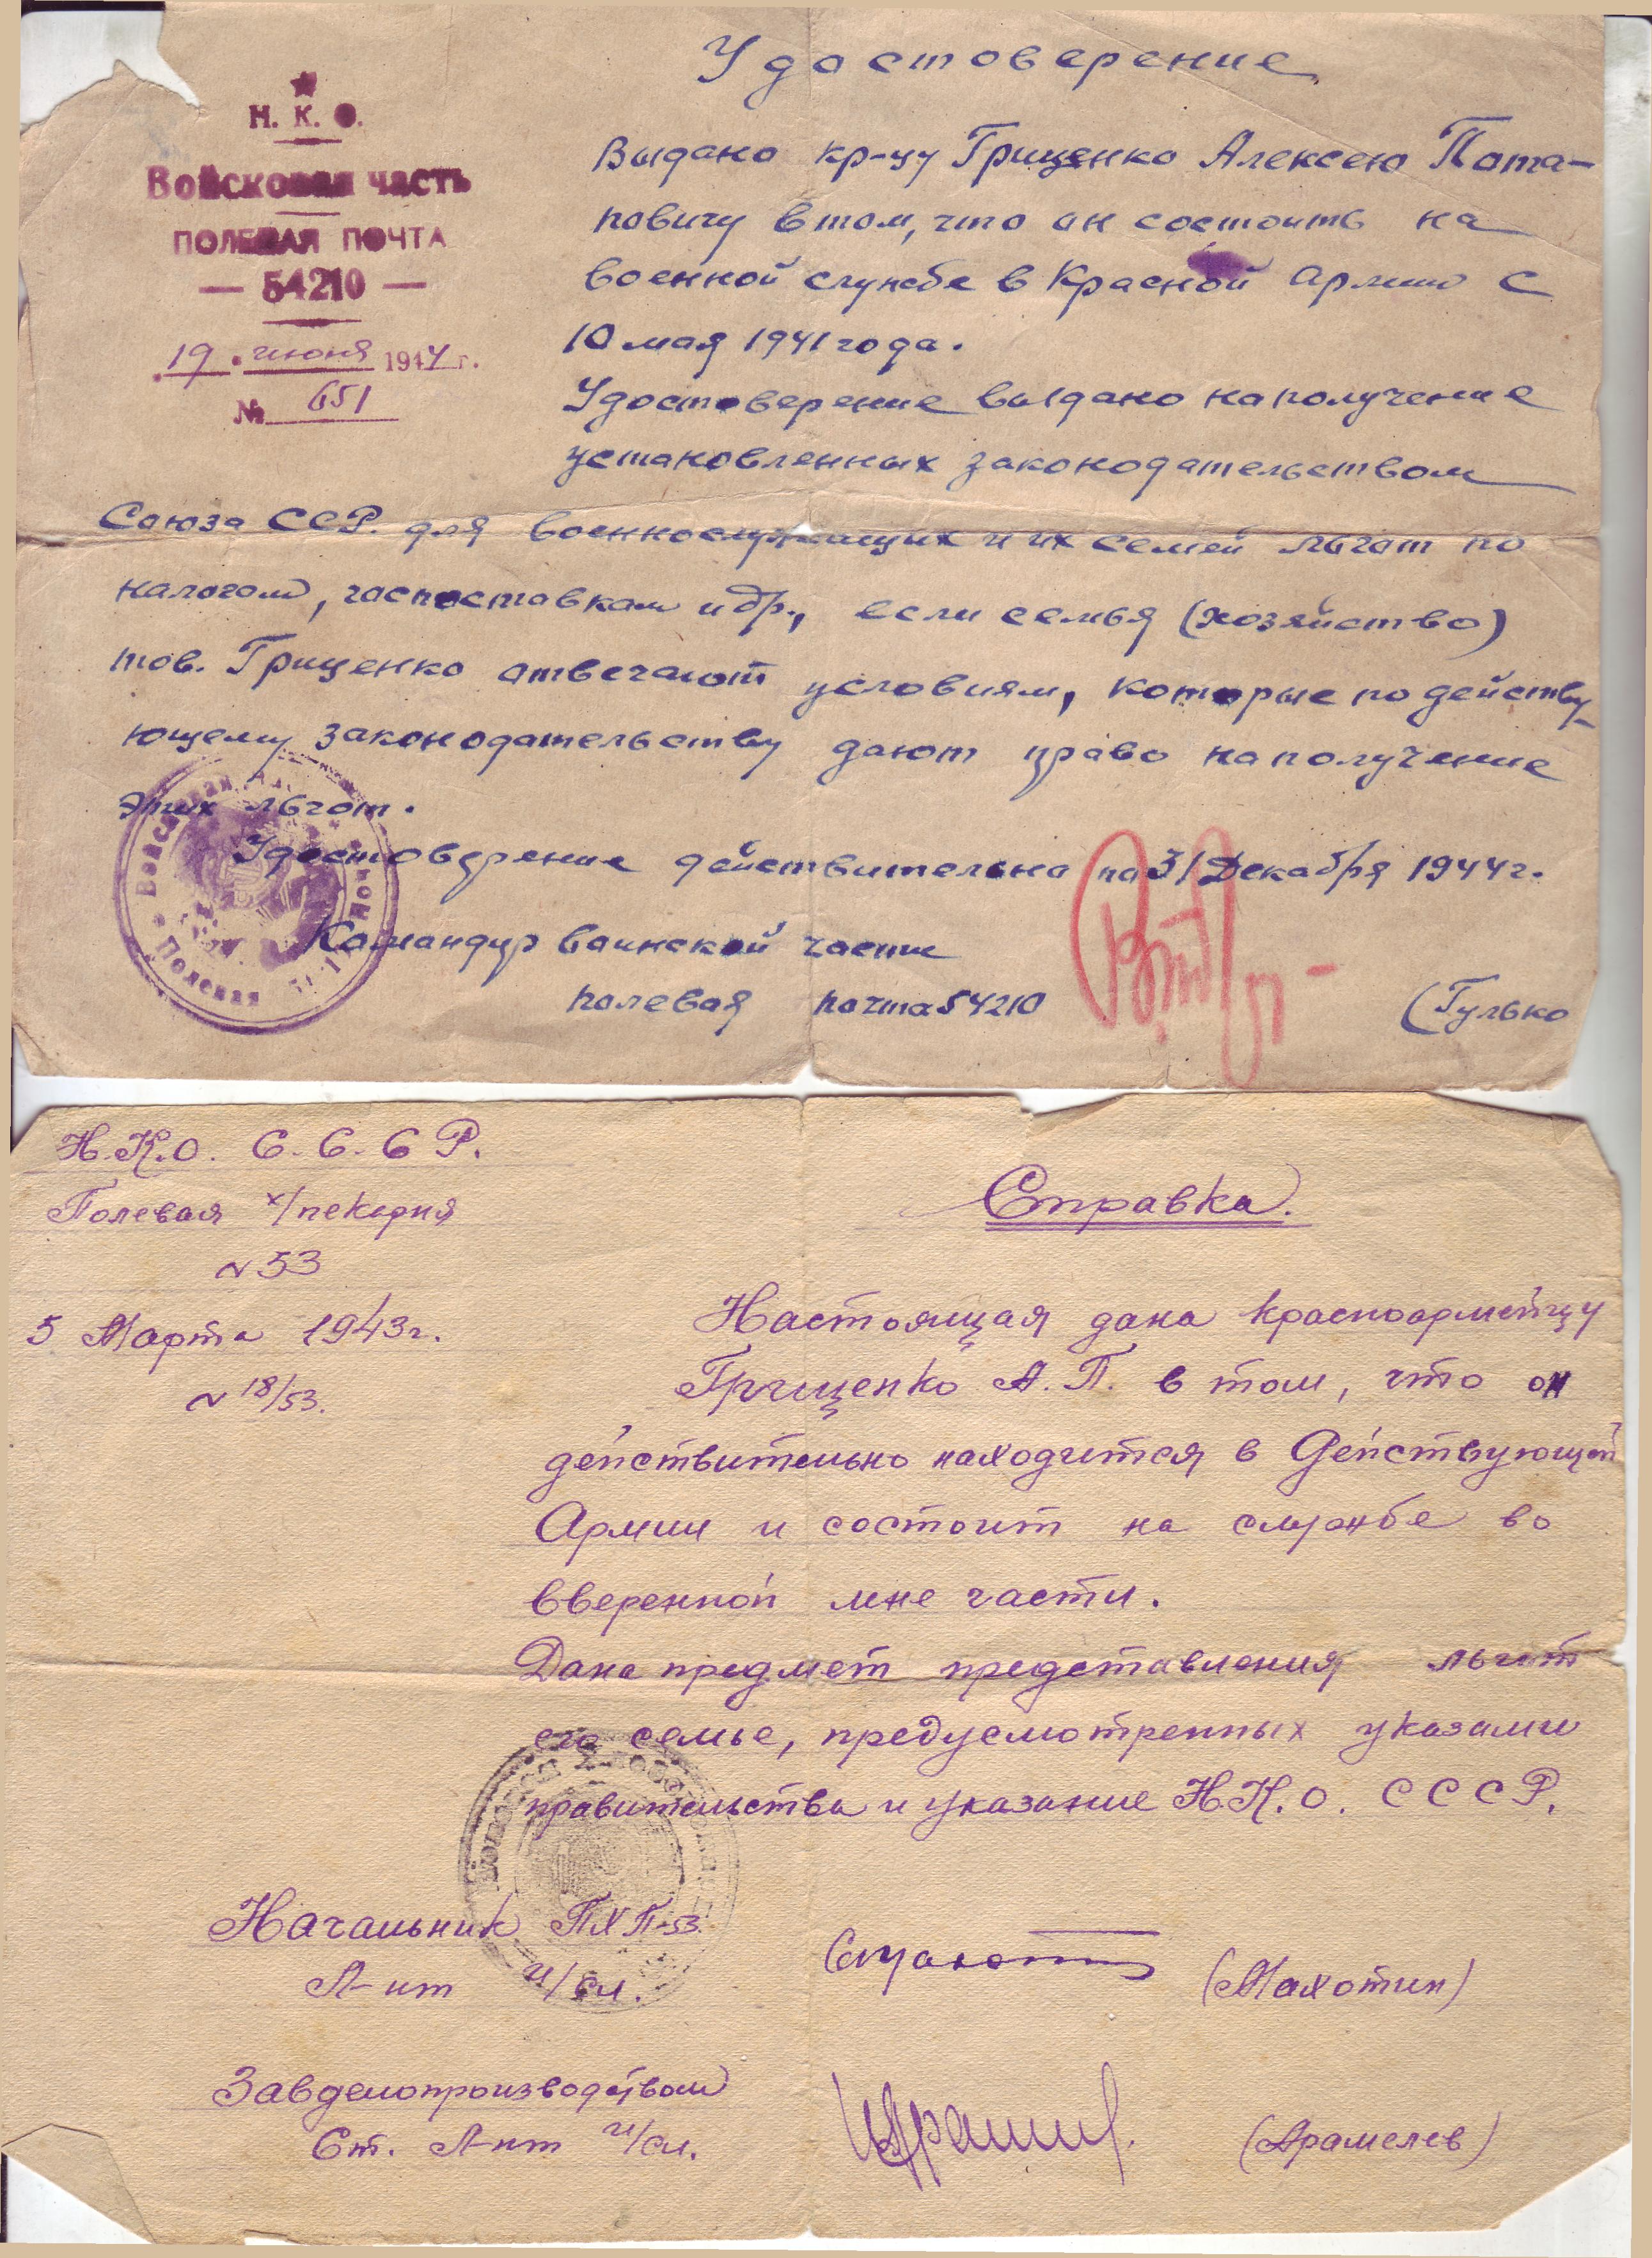 Удостоверение
Н. К. О.
Войсковая часть
ПОЛЕВАЯ ПОЧТА
— 54210 —
19 июня 1944 г.
№ 651
Выдано кр-цу Гриценко Алексею Пота-
повичу в том, что он состоить на
военной службе в Красной Армии с
10 мая 1941 года.
Удостоверение выдано на получение
установленных законодательством
Союза ССР. для военнослужащих и их семей льгот по
налогам, госпоставкам и др., если семья (хозяйство)
тов. Гриценко отвечают условиям, которые по действу-
ющему законодательству дают право на получение
этих льгот.
Удостоверение действительно по 31 Декабря 1944 г.
Командир воинской части
полевая почта 54210
(Гулько
Войсковая
Полевая
Н.К.О. С.С.С.Р.
Полевая х/пекарня
№ 53
5 Марта 1943 г.
№ 18/53.
Справка.
Настоящая дана красноармейцу
Грищенко А.П. в том, что он
действительно находится в Действующей
Армии и состоит на службе во
вверенной мне части.
Дана предмет представления льгот
его семье, предусмотренных указами
правительства и указание Н.К.О. СССР.
Начальник ПХП-53.
Л-нт и/сл.
(Махотин)
Завделопроизводством
Ст. Л-нт и/сл.
(Арамелев)